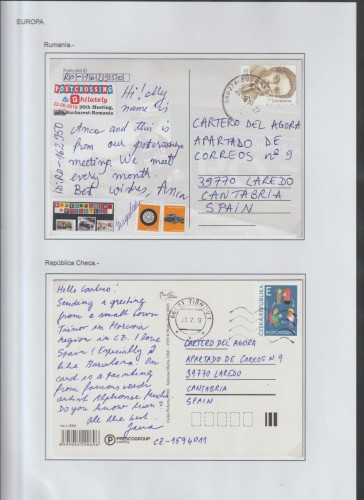 EUROPA.
Rumania.-
Postcard ID
POSTCROSSING
& Philately
22-08-2015
20th Meeting,
Bucharest-Romania
Hi! My
name is
Anca and this is
from our postcrossing
meeting. We meet
every month.
Best wishes, Anca
CARTERO DEL AGORA
APARTADO DE
CORREOS nº 9
39770 LAREDO
CANTABRIA
SPAIN
República Checa.-
Hello Cartero!
Sending a greeting
from a small town
in Moravia
region in CZ. I love
Spain! Especially I
like Barcelona! On
card is a painting
from famous czech
artist Alphonse Mucha.
Do you know him?
all the best
Jana
E
ČESKÁ REPUBLIKA
CARTERO DEL AGORA
APARTADO DE CORREOS Nº 9
39770 LAREDO
CANTABRIA
SPAIN
PRESCOGROUP
CZ-1594011